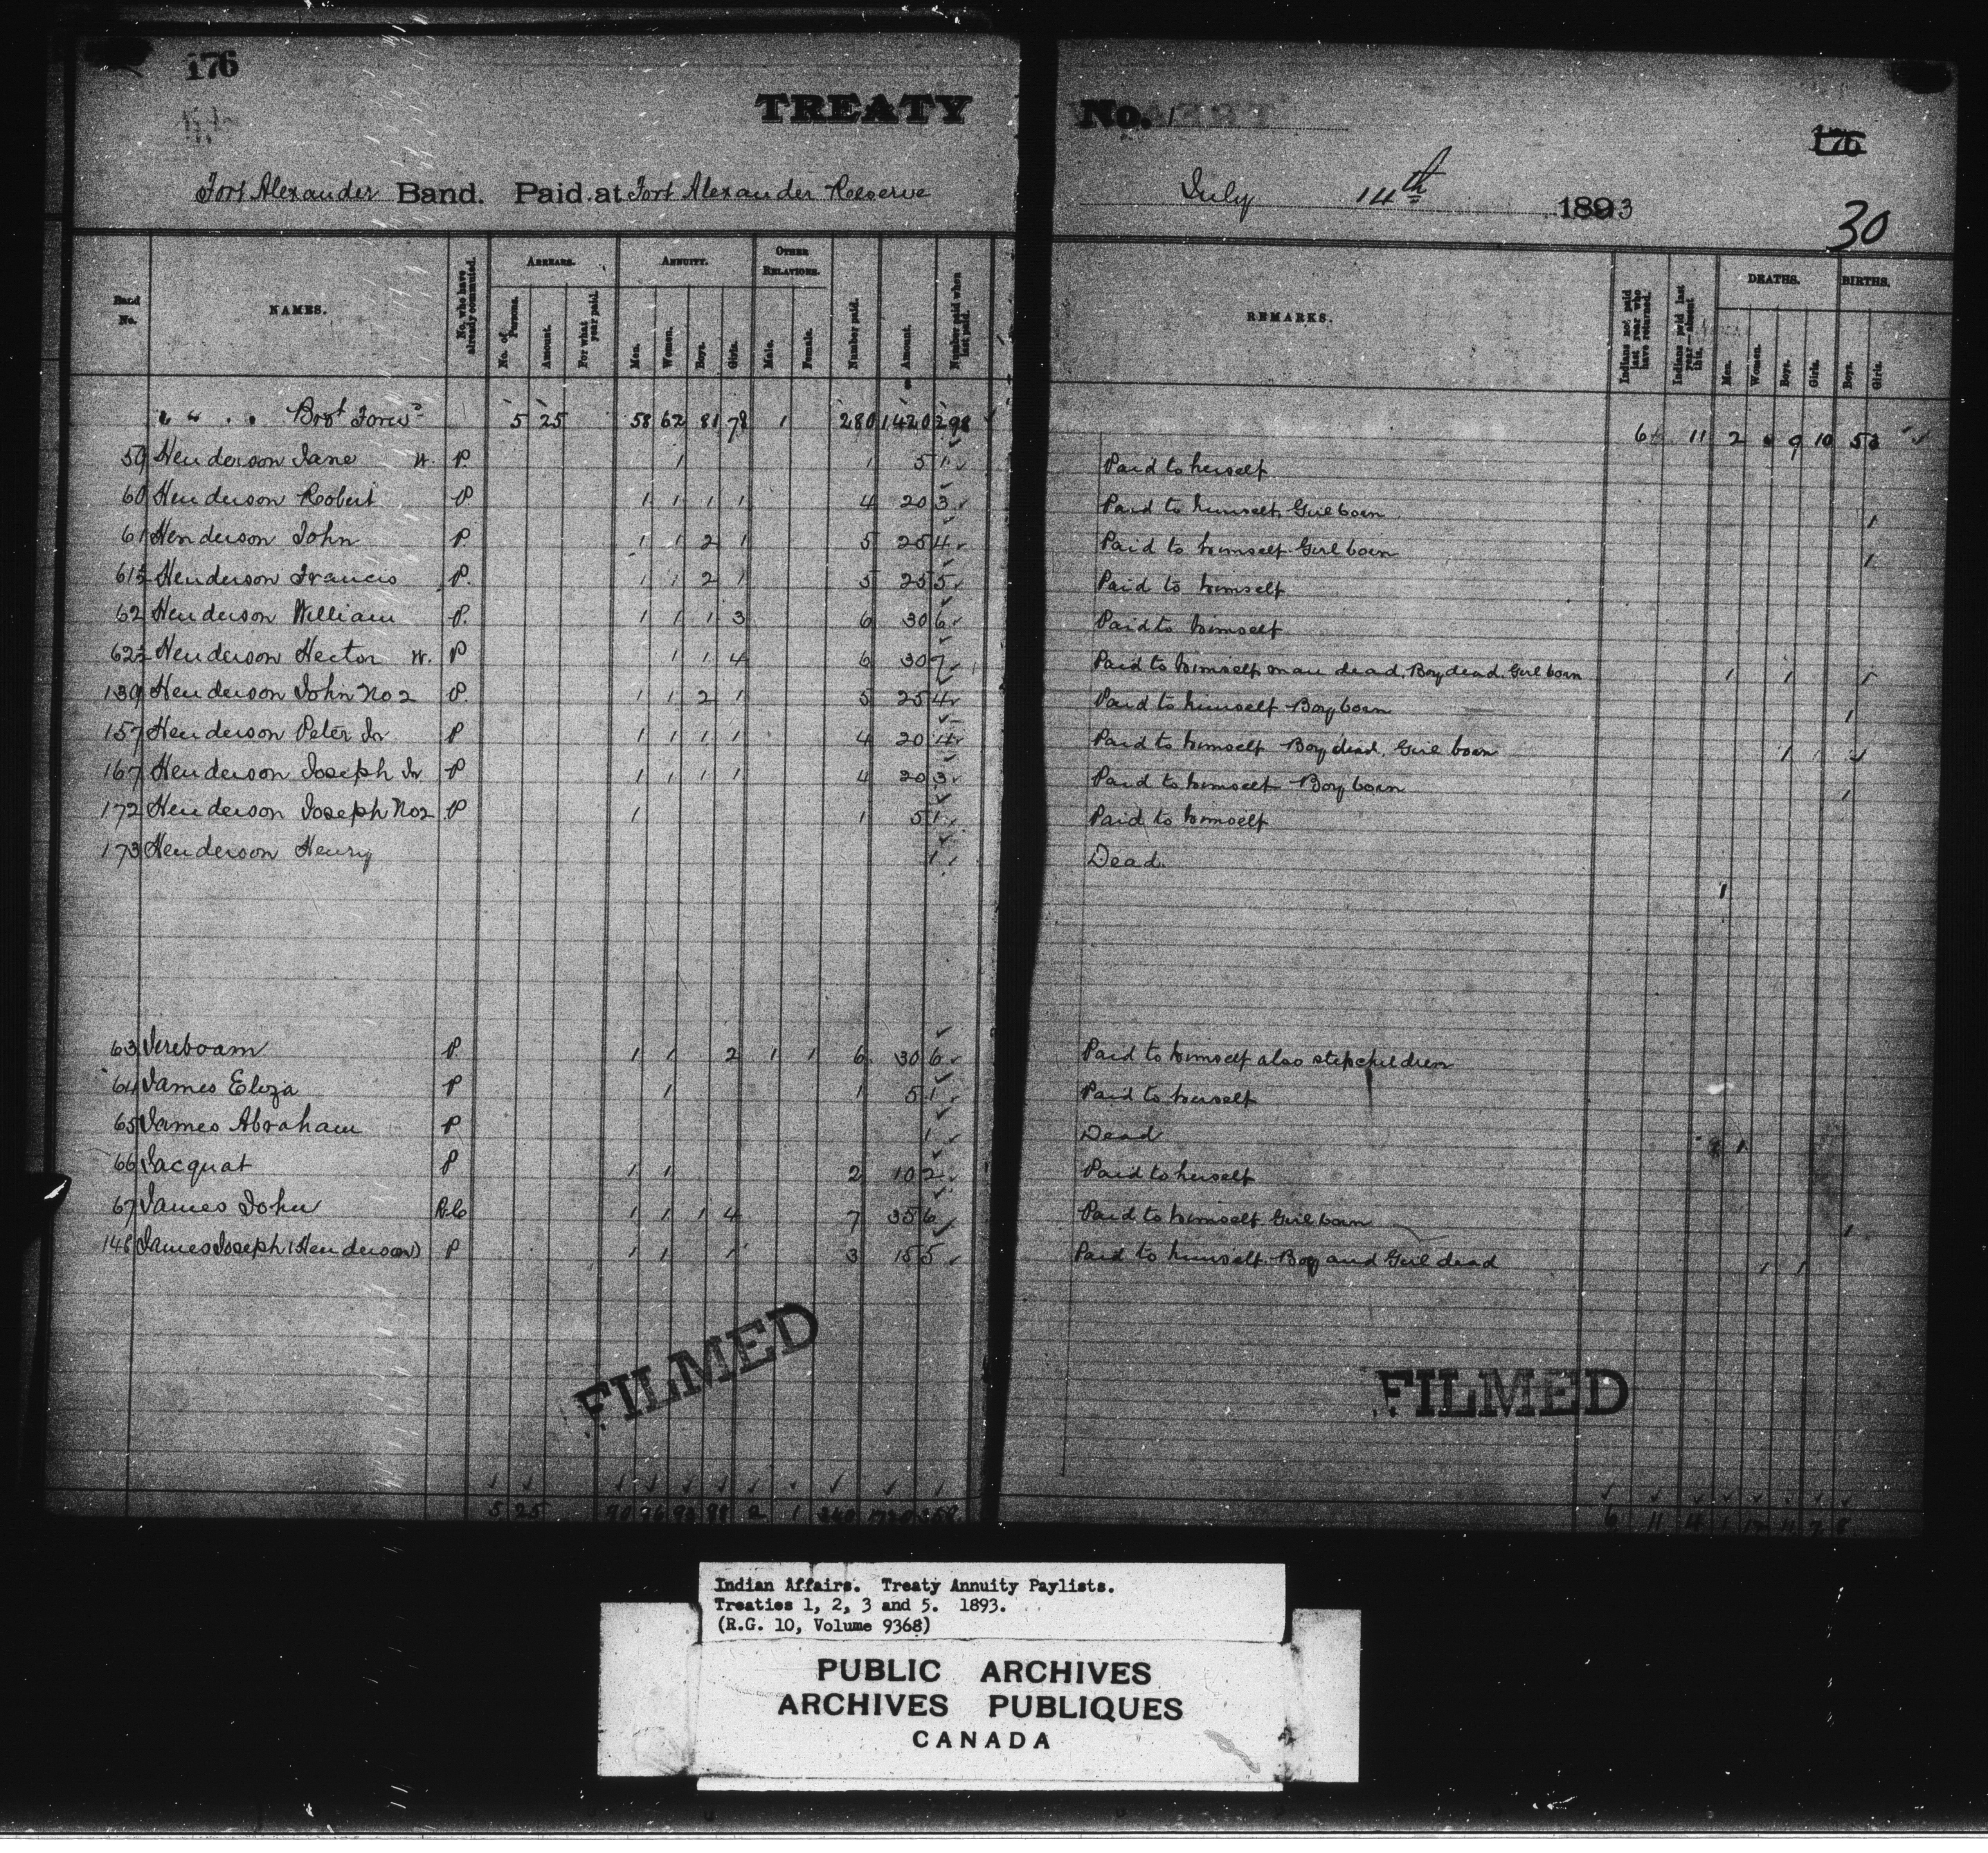 176
TREATY No. 1
176
Fort Alexander Band. Paid at Fort Alexander Reserve July 14th 1893
30
Band No. NAMES. No. who have already commuted. ARREARS. No. of Persons. Amount. For what year paid. ANNUITY. Men. Women. Boys. Girls. OTHER RELATIONS. Male. Female. Number paid. Amount. Number paid when last paid. REMARKS. Indians not paid last year who have returned. Indians paid last year absent this. DEATHS. Men. Women. Boys. Girls. BIRTHS. Boys. Girls.
" " " " Brot Forwd 5 25 58 62 81 78 1 280 1420 298 6 11 2 9 10 5
59 Henderson Jane W. P. 1 1 5 1 Paid to herself
60 Henderson Robert P. 1 1 1 1 4 20 3 Paid to himself. Girl born 1
61 Henderson John P. 1 1 2 1 5 25 4 Paid to himself. Girl born 1
61½ Henderson Francis P. 1 1 2 1 5 25 5 Paid to himself
62 Henderson William P. 1 1 1 3 6 30 6 Paid to himself
62½ Henderson Hector W. P 1 1 4 6 30 7 Paid to himself, man dead, Boy dead, Girl born 1 1 1
139 Henderson John No 2 P. 1 1 2 1 5 25 4 Paid to himself Boy born 1
157 Henderson Peter Jr P 1 1 1 1 4 20 4 Paid to himself Boy dead, Girl born 1 1
167 Henderson Joseph Jr P 1 1 1 1 4 20 3 Paid to himself Boy born 1
172 Henderson Joseph No 2 P 1 1 5 1 Paid to himself
173 Henderson Henry 1 Dead. 1
63 Jereboam P. 1 1 2 1 1 6 30 6 Paid to himself also stepchildren
64 James Eliza P 1 1 5 1 Paid to herself
65 James Abraham P 1 Dead 1
66 Jacquat P 1 1 2 10 2 Paid to herself
67 James John R.C 1 1 1 4 7 35 6 Paid to himself Girl born 1
146 James Joseph (Henderson) P 1 1 1 3 15 5 Paid to himself. Boy and Girl dead 1 1
FILMED
FILMED
5 25 2 1 6 11 4 1
Indian Affairs. Treaty Annuity Paylists.
Treaties 1, 2, 3 and 5. 1893.
(R.G. 10, Volume 9368)
PUBLIC ARCHIVES
ARCHIVES PUBLIQUES
CANADA